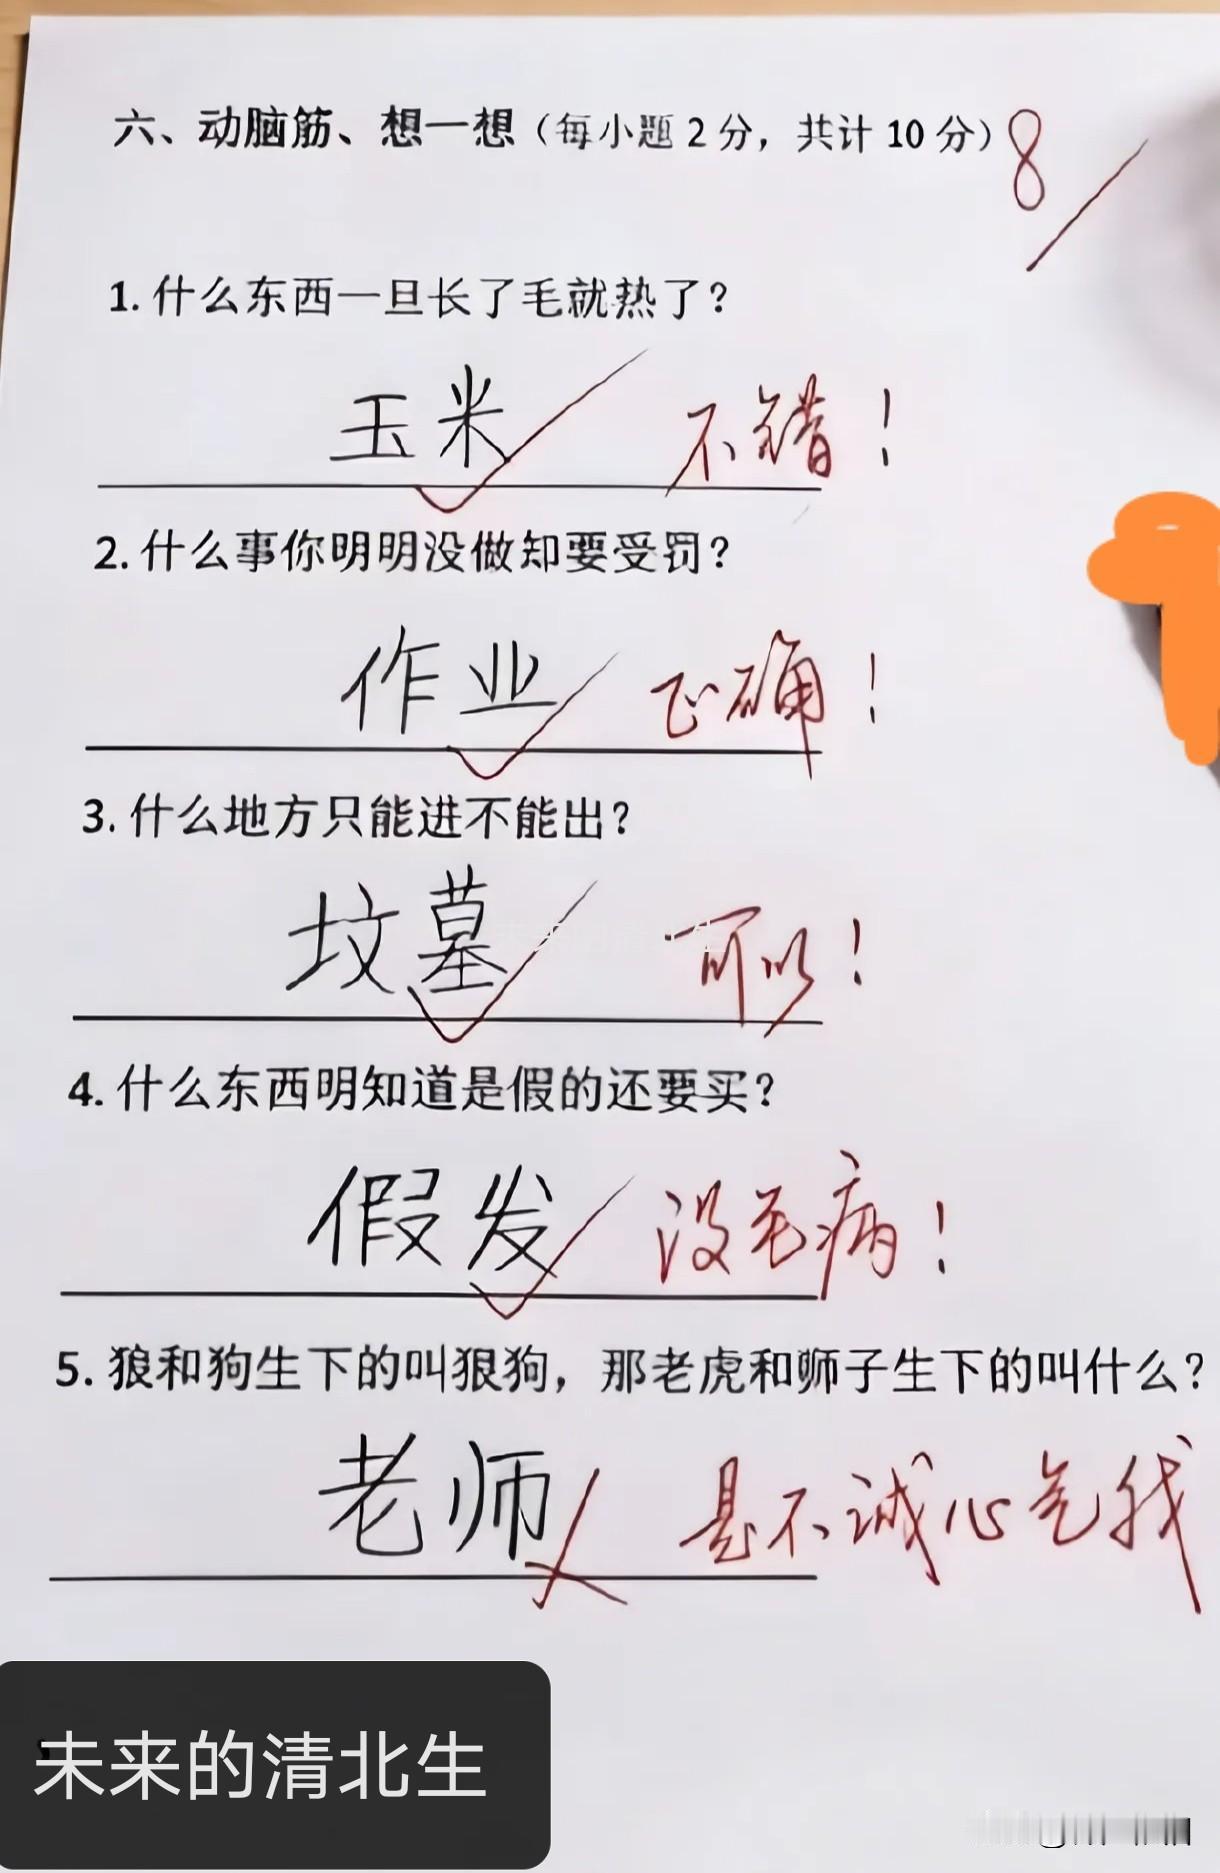 六、动脑筋、想一想（每小题 2 分，共计 10 分）8
1. 什么东西一旦长了毛就热了？
玉米 不错！
2. 什么事你明明没做却要受罚？
作业 正确！
3. 什么地方只能进不能出？
坟墓 可以！
4. 什么东西明知道是假的还要买？
假发 没毛病！
5. 狼和狗生下的叫狠狗，那老虎和狮子生下的叫什么？
老师 是不诚心气我
未来的清北生